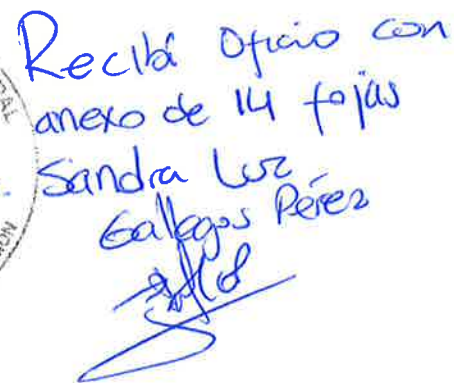 Recibí Oficio con
anexo de 14 fojas
Sandra Luz
Gallegos Pérez